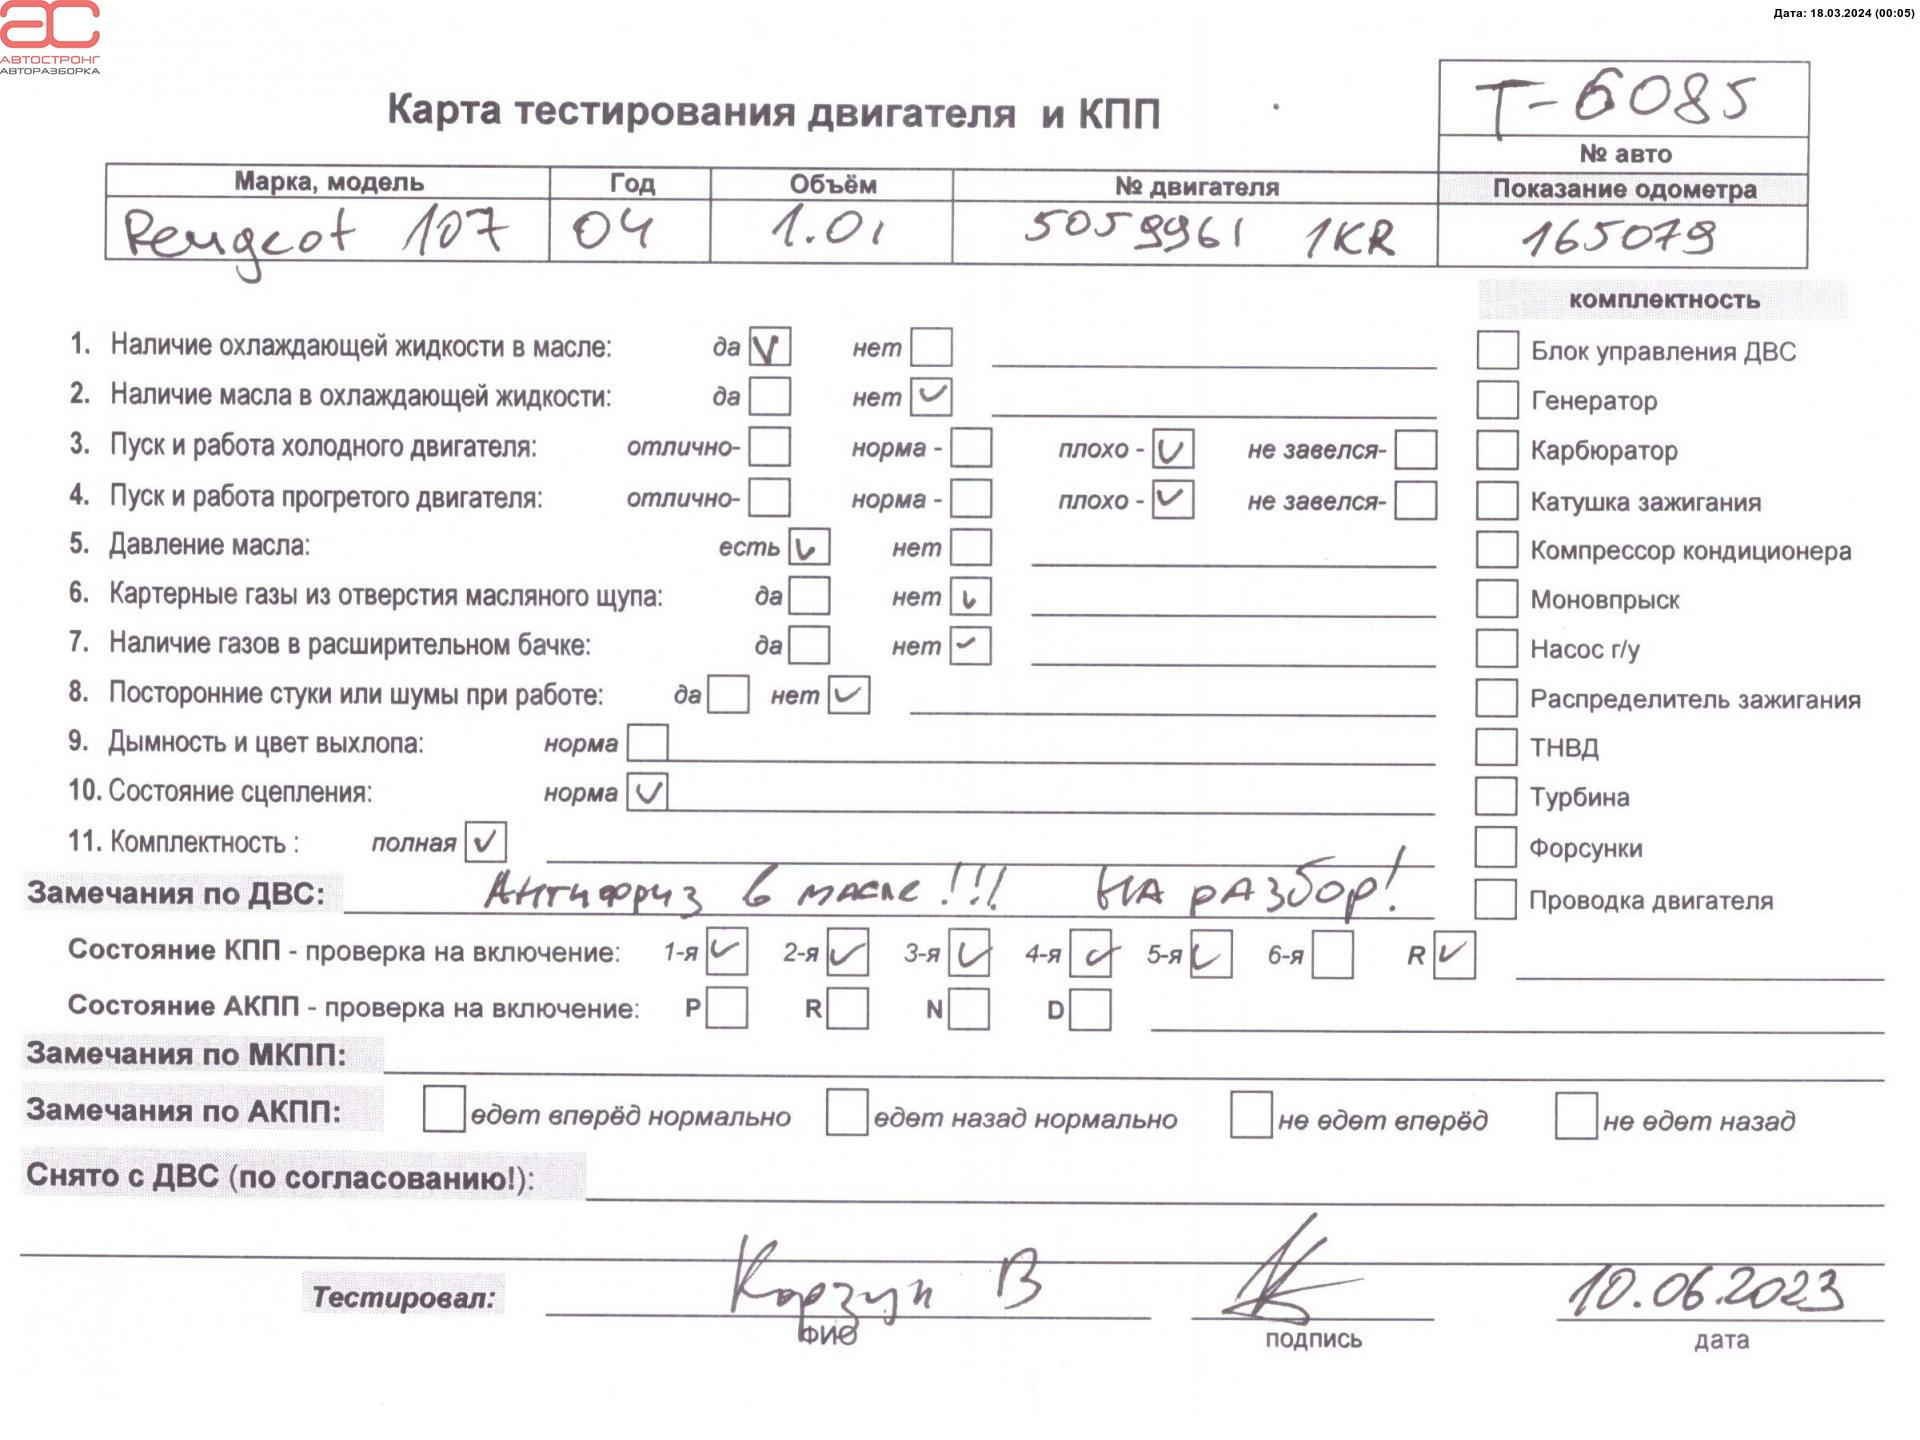 Дата: 18.03.2024 (00:05)
АВТОСТРОНГ
АВТОРАЗБОРКА
Карта тестирования двигателя и КПП
Т-6085
№ авто
Марка, модель Год Объём № двигателя Показание одометра
Peugeot 107 04 1.0i 5059961 1KR 165079
комплектность
1. Наличие охлаждающей жидкости в масле: да нет Блок управления ДВС
2. Наличие масла в охлаждающей жидкости: да нет Генератор
3. Пуск и работа холодного двигателя: отлично- норма - плохо - не завелся- Карбюратор
4. Пуск и работа прогретого двигателя: отлично- норма - плохо - не завелся- Катушка зажигания
5. Давление масла: есть нет Компрессор кондиционера
6. Картерные газы из отверстия масляного щупа: да нет Моновпрыск
7. Наличие газов в расширительном бачке: да нет Насос г/у
8. Посторонние стуки или шумы при работе: да нет Распределитель зажигания
9. Дымность и цвет выхлопа: норма ТНВД
10. Состояние сцепления: норма Турбина
11. Комплектность : полная Форсунки
Замечания по ДВС: Антифриз в масле!!! НА разбор! Проводка двигателя
Состояние КПП - проверка на включение: 1-я 2-я 3-я 4-я 5-я 6-я R
Состояние АКПП - проверка на включение: P R N D
Замечания по МКПП:
Замечания по АКПП: едет вперёд нормально едет назад нормально не едет вперёд не едет назад
Снято с ДВС (по согласованию!):
Тестировал: Корзун В 10.06.2023
ФИО подпись дата